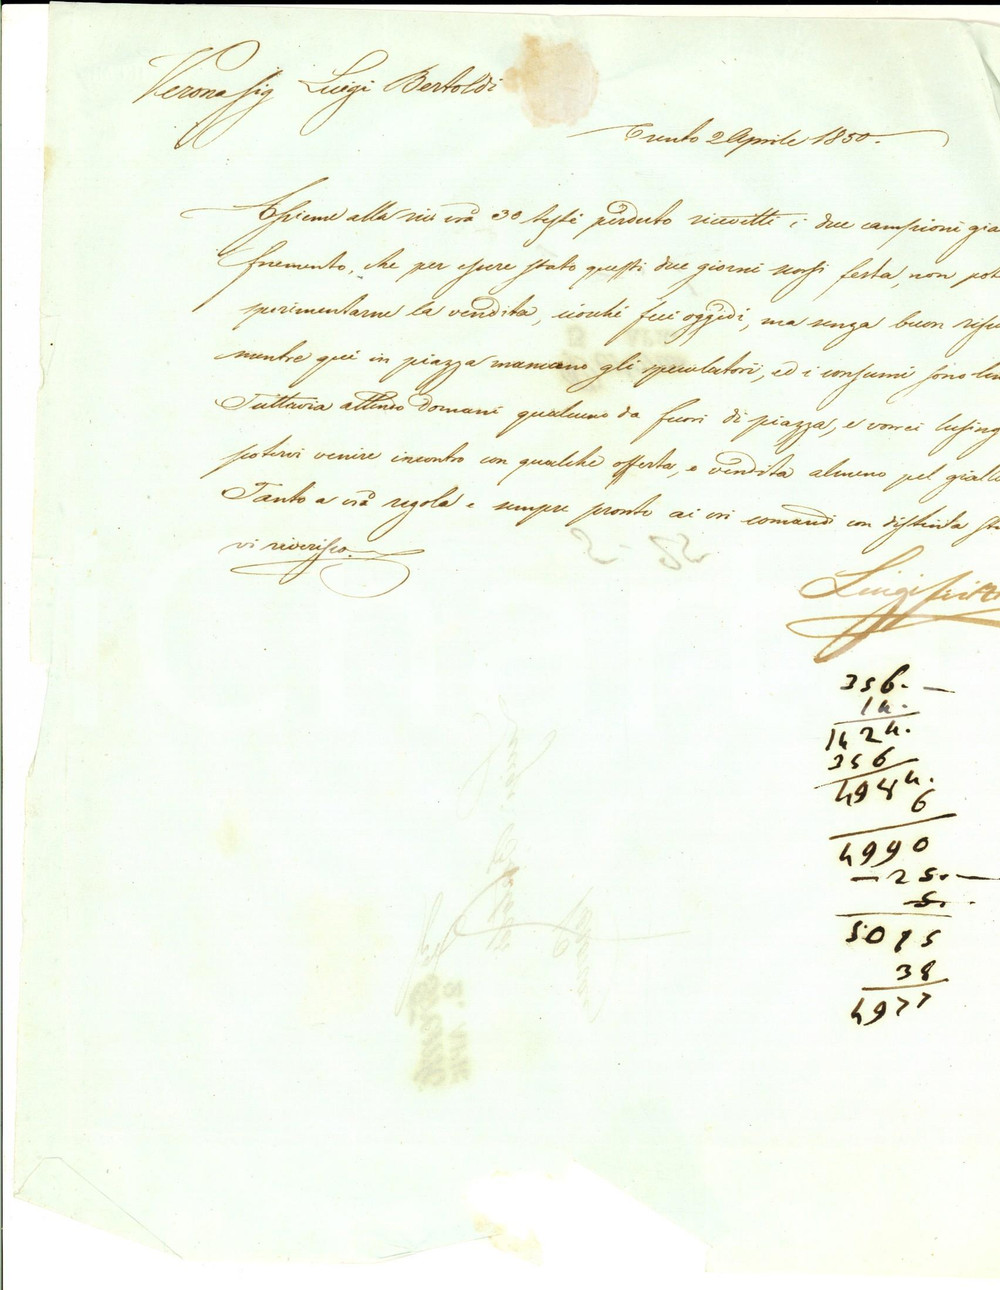 Verona Sig Luigi Bertoldi
Trento 2 Aprile 1850.
Assieme alla 30 perduto ricevetti i due campioni gia
frumento, che per essere stato questi due giorni scorsi festa, non pot
sperimentarne la vendita, ciochè feci oggidì, ma senza buon risu
mentre qui in piazza mancano gli speculatori, ed i consumi sono lim
Tuttavia attendo domani qualcuno da fuori di piazza, e vorrei lusing
potervi venire incontro con qualche offerta, e vendita almeno pel giall
Tanto a vrã regola e sempre pronto ai vri comandi con distinta sti
vi riverisco.
Luigi
356.-
14.
1424.
356
4984.
6
4990
-25.-
5.
5015
38
4977